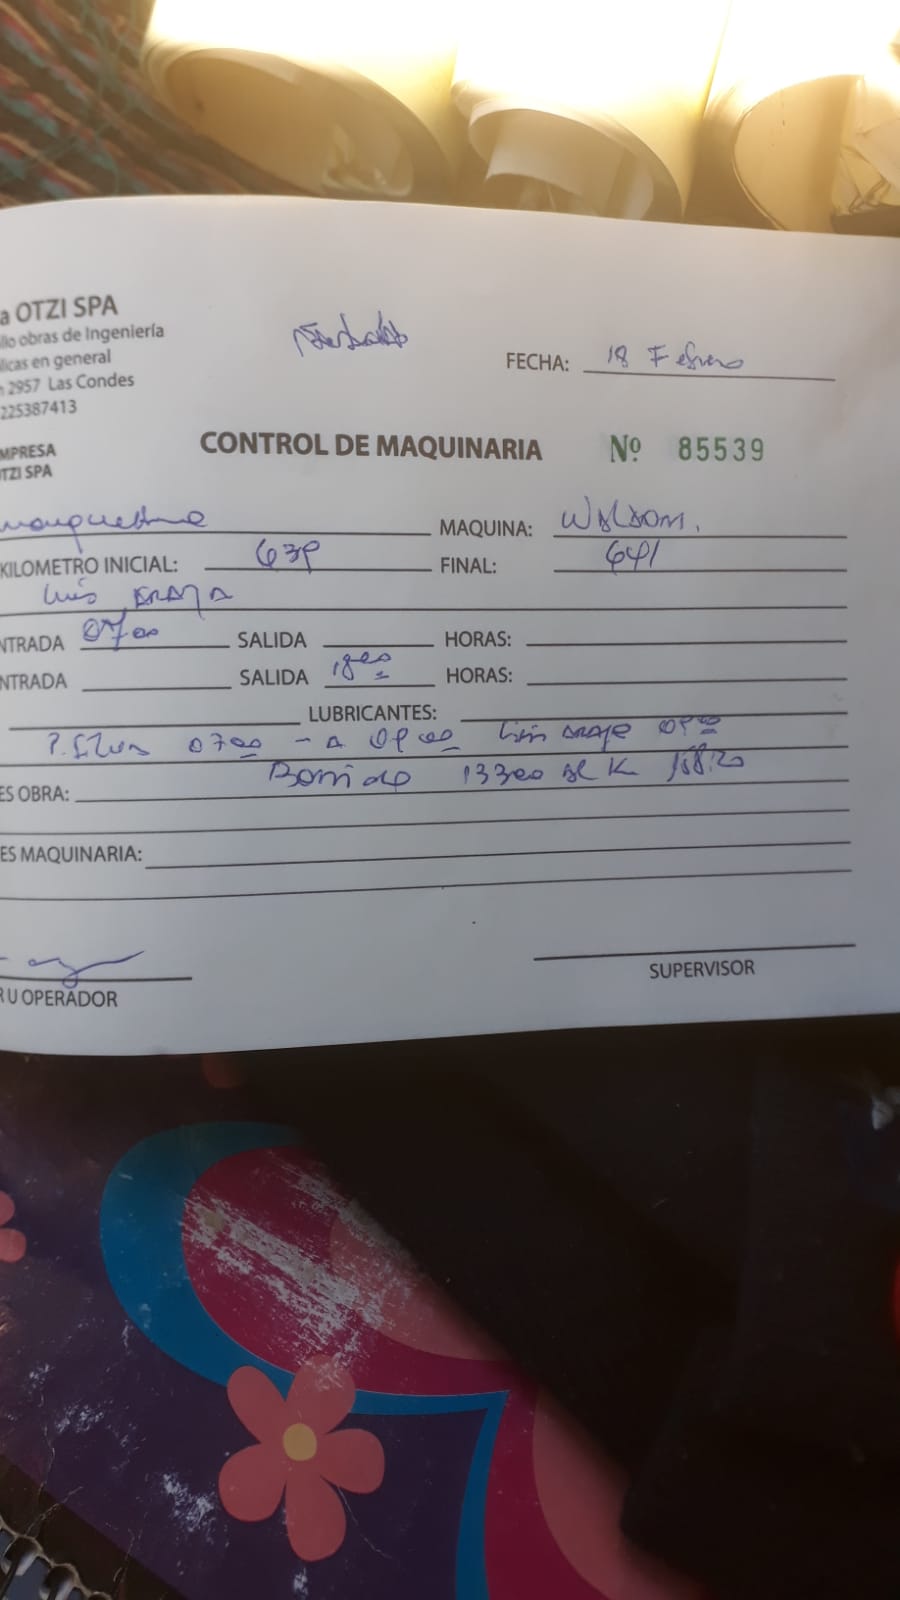 a OTZI SPA
llo obras de Ingeniería
licas en general
2957 Las Condes
225387413
MPRESA
TZI SPA
FECHA: 18 Febrero
CONTROL DE MAQUINARIA Nº 85539
MAQUINA:
KILOMETRO INICIAL: 639 FINAL: 641
Luis ARAYA
NTRADA 0700 SALIDA HORAS:
NTRADA SALIDA 1800 HORAS:
LUBRICANTES:
0700 - A 0900 Luis ARAYA 0900
13300 al K
ES OBRA:
ES MAQUINARIA:
R U OPERADOR
SUPERVISOR